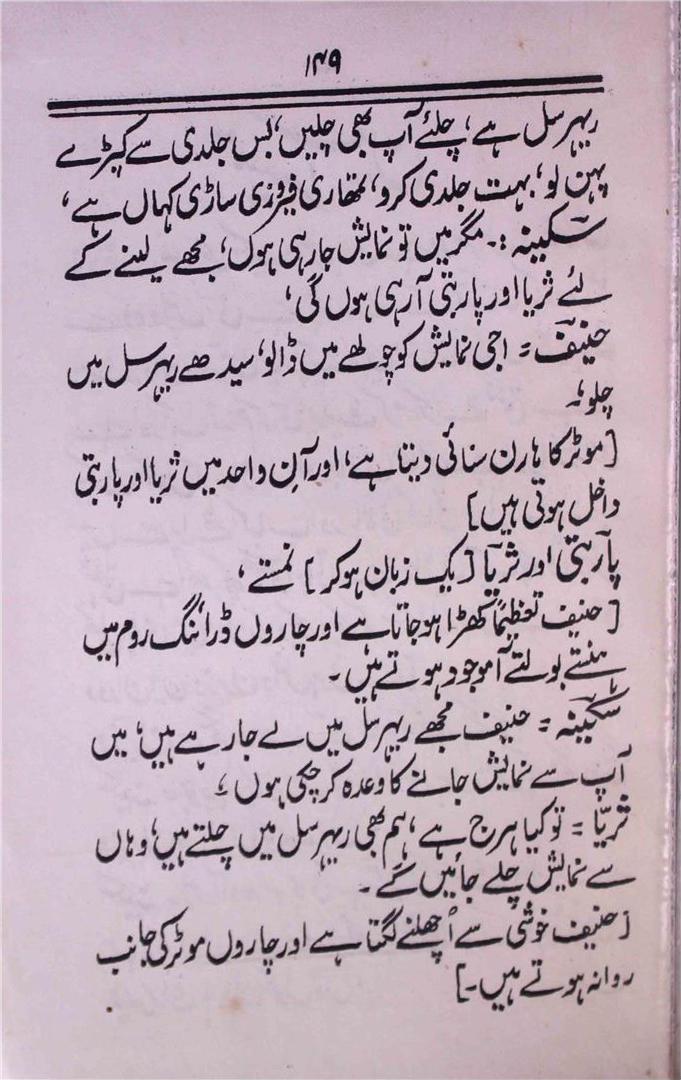 ۱۴۹
ریہرسل ہے، چلئے آپ بھی چلیں، بس جلدی سے کپڑے
پہن لو، بہت جلدی کرو، تمھاری فیروزی ساڑی کہاں ہے،
سکینہ :۔ مگر میں تو نمایش جا رہی ہوں، مجھے لینے کے
لئے ثریا اور پاربتی آ رہی ہوں گی،
حنیف = اجی نمایش کو چولھے میں ڈالو، سیدھے ریہرسل میں
چلو،۔
[موٹر کا ہارن سنائی دیتا ہے، اور آنِ واحد میں ثریا اور پاربتی
داخل ہوتی ہیں]
پاربتی اور ثریا [یک زبان ہوکر] نمستے،
[حنیف تعظیماً کھڑا ہوجاتا ہے اور چاروں ڈرائنگ روم میں
ہنستے بولتے آموجود ہوتے ہیں۔
سکینہ = حنیف مجھے ریہرسل میں لے جارہے ہیں، میں
آپ سے نمایش جانے کا وعدہ کرچکی ہوں ؟
ثریا = تو کیا ہرج ہے، ہم بھی ریہرسل میں چلتے ہیں، وہاں
سے نمایش چلے جائیں گے۔
[حنیف خوشی سے اُچھلنے لگتا ہے اور چاروں موٹر کی جانب
روانہ ہوتے ہیں۔]